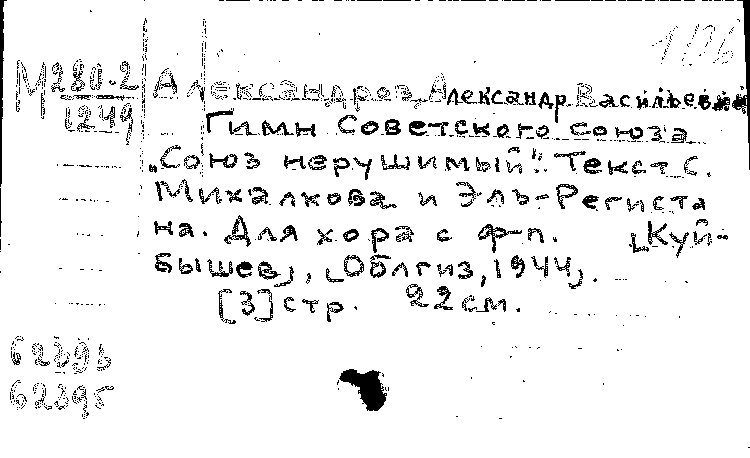 М 280-2
1249
Александров, Александр Васильевич
Гимн Советского союза
„Союз нерушимый". Текст С.
Михалкова и Эль-Региста
на. Для хора с ф-п. [Куй-
бышев], [Облгиз, 1944].
[3] стр. 22 см.